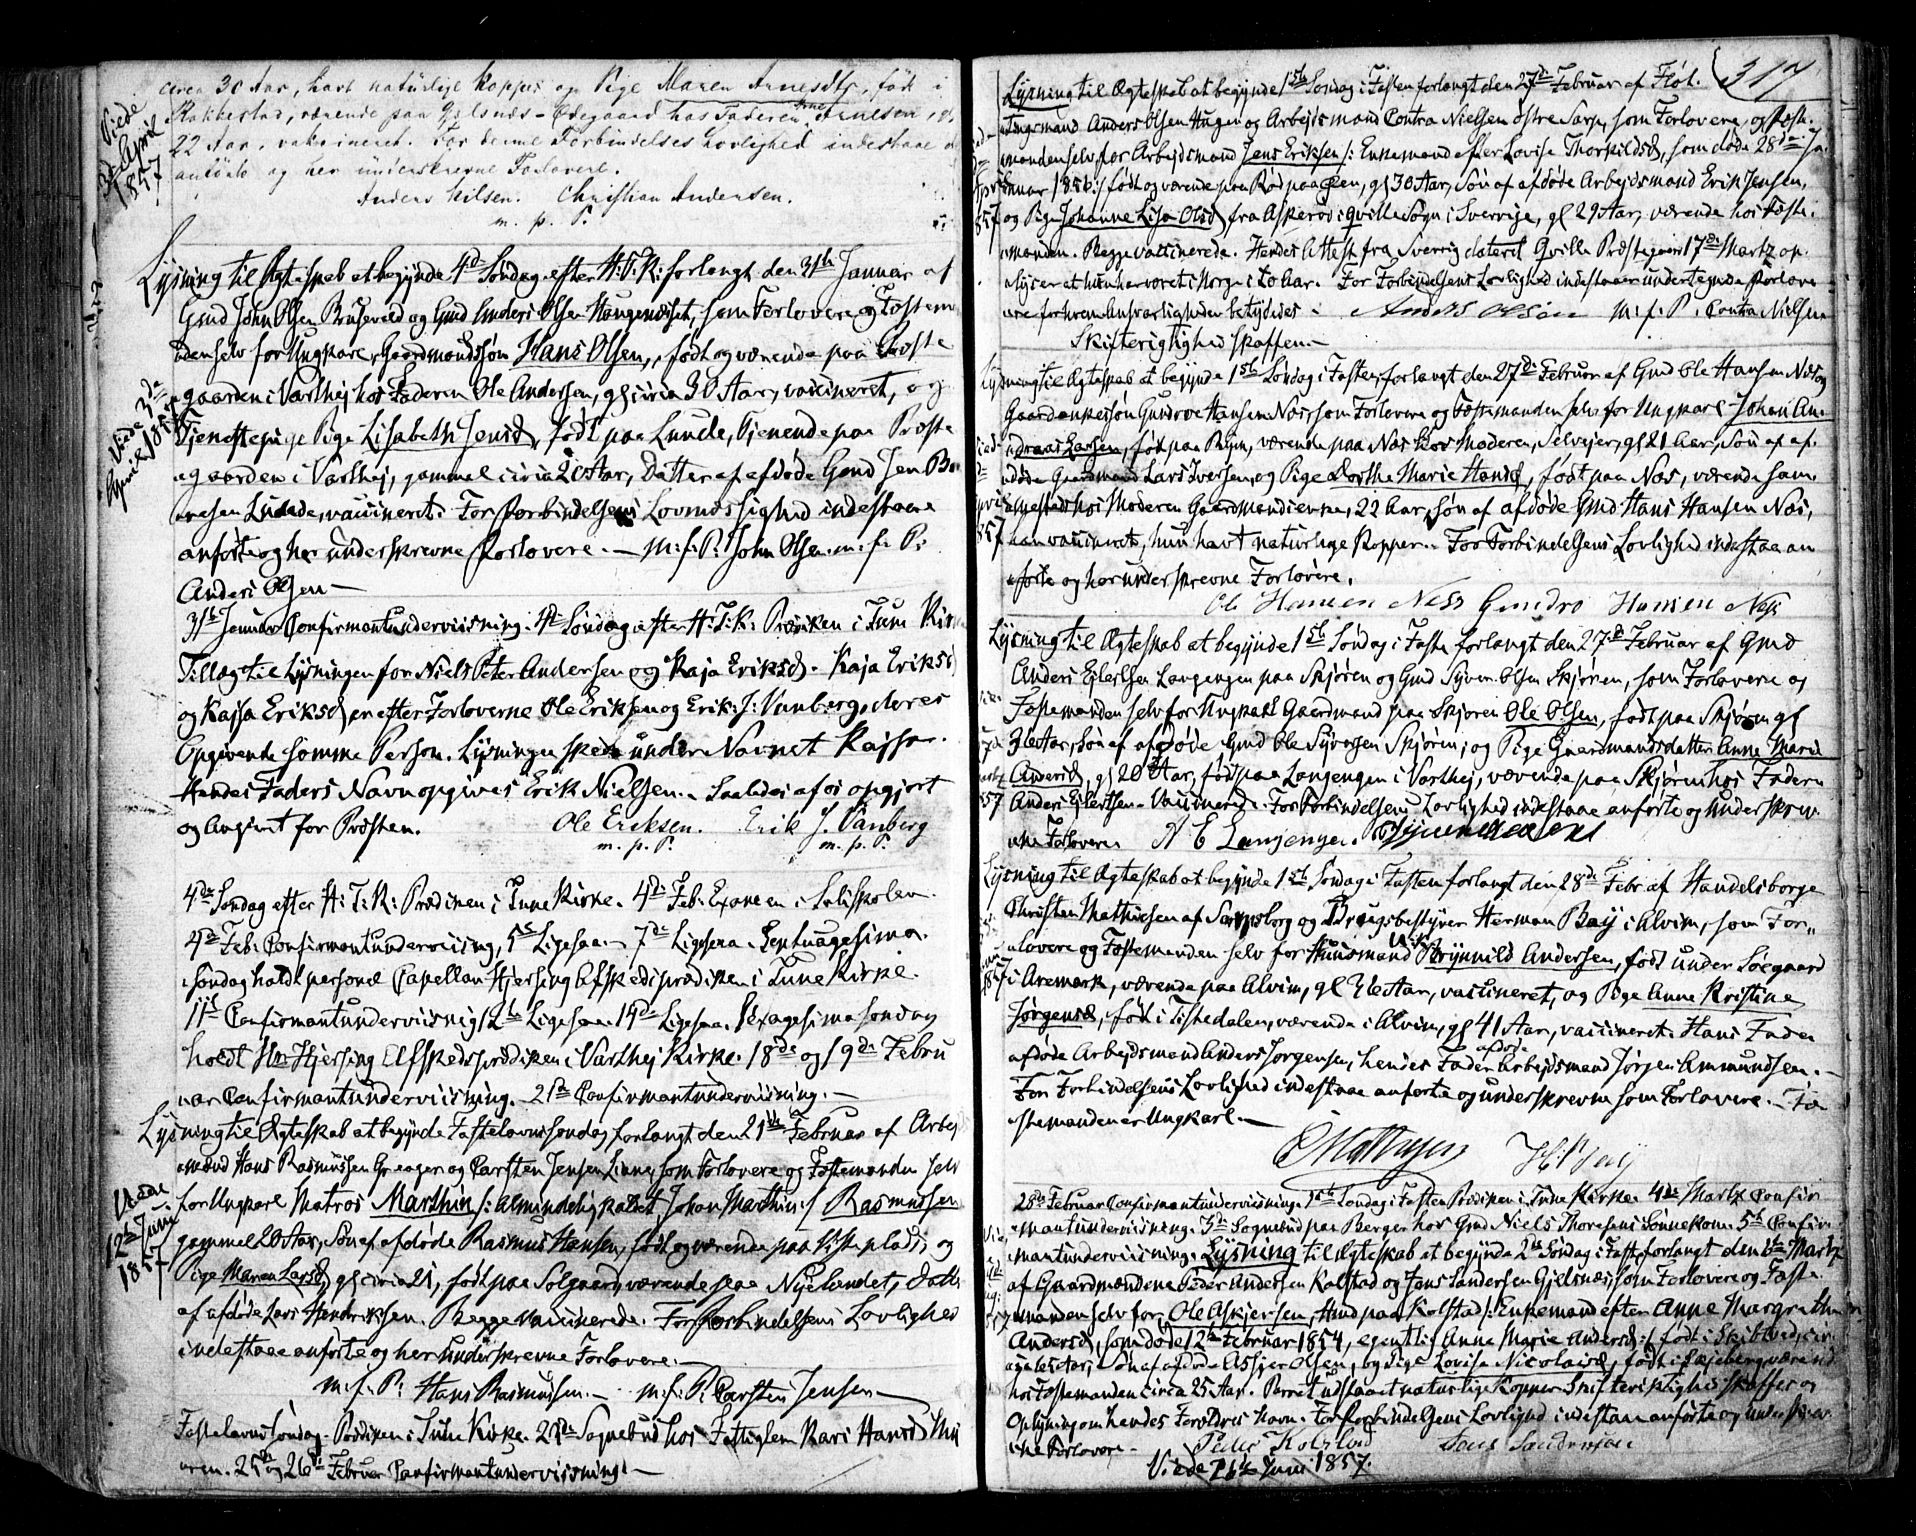 circa 30 Aar, havt naturlige Kopper og Pige Maren Arnesdtr, født i
Rakkestad, værende paa Gjelsnæs-Ødegaard hos Faderen Arne Arnesen, gl
22 Aar, vaksineret. For denne Forbindelses Lovlighed indestaae
anførte og her underskrevne Forlovere.
Anders Nilsen. Christian Andersen.
m. p. P.
Viede
3die April
1857
Lysning til Ægteskab at begynde 4de Søndag efter H: 3 K: forlangt den 31te Januar af
Gmd John Olsen Brusevold og Gmd Anders Olsen Haugenæsset, som Forlovere og Festem
anden selv for Ungkarl, Gaardmandssøn Hans Olsen, født og værende paa Præste
gaarden i Varthej hos Faderen Ole Andersen, gl circa 30 Aar, vaccineret, og
Tjenestepige Pige Lisabeth Jensd, født paa Lunde, Tjenende paa Præste
gaarden i Varthej, gammel circa 20 Aar, Datter af afdøde Gmd Jen
Lunde, vaccineret. For Forbindelsens Lovmæssighed indestaae
anførte og her underskrevne Forlovere. — M: f: P: John Olsen. m: f: P:
Anders Olsen —
Viede 3de
April 1857
31te Januar Confirmantunderviisning. 4de Søndag efter H: 3: K: Prædiken i Tune Kirke
Tillæg til Lysningen for Niels Peter Andersen og Kaja Eriksd. Kaja Eriksd
og Kajsa Eriksd er efter Forloverne Ole Eriksen og Erik J. Vanberg, deres
Opgivende samme Person. Lysningen skede under Navnet Kajsa.
Hendes Faders Navn opgives Erik Nielsen. Saaledes af os opgjort
og Angivet for Præsten. Ole Eriksen. Erik J. Vanberg
m. p. P. m. p. P.
4de Søndag efter H: 3: K: Prædiken i Tune Kirke. 4de Feb: Examen i Soliskolen
4de Feb: Confirmantunderviisning, 5te Ligesaa. 7de Ligesaa. Septuagesima
Søndag holdt personel Capellan Hjersing Afskedsprædiken i Tune Kirke.
11te Confirmantunderviisning, 12te Ligesaa. 14de Ligesaa. Sexagesima Søndag
holdt Hr Hjersing Afskedsprædiken i Varthej Kirke. 18de og 19de Febru
ar Confirmantunderviisning. 21de Confirmantunderviisning. —
Lysning til Ægteskab at begynde Fastelavnssøndag forlangt den 21de Februar af Arbej
mand Hans Rasmussen Greager og Carsten Jensen Liane, som Forlovere og Festemanden selv
for Ungkarl Matros Marthin /: almindelig kaldet Johan Marthin :/ Rasmussen
gammel 20 Aar, Søn af afdøde Rasmus Hansen, født og værende paa og
Pige Maren Larsd, gl circa 21, født paa Solgaard, værende paa Nyelandet, Datt
af afdøde Lars Hendriksen. Begge vaccinerede. For Forbindelsens Lovlighed
indestaae anførte og her underskrevne Forlovere. —
M: f: P: Hans Rasmussen. — M: f: P: Carsten Jensen —
Viede
12te Juni
1857
Fastelavns Søndag Prædiken i Tune Kirke. 23de Sognebud hos Fattiglem Kari Hansd
25de og 26de Februar Confirmantunderviisning. —
317
Lysning til Ægteskab at begynde 1ste Søndag i Fasten forlangt den 27de Februar af Fløt.
ningsmand Anders Olsen Haugen og Arbejdsmand Contra Nielsen østre Sarp, som Forlovere, og Feste.
manden selv for Arbejdsmand Jens Eriksen /: Enkemand efter Lovise Thorkildsd, som døde 28de Ja
nuar 1856 :/ født og værende paa Rød paa Øen, gl 30 Aar, Søn af afdøde Arbejdsmand Erik Jensen,
og Pige Johanne Lisa Olsd, fra Askerød i Qville Sogn i Sverrige, gl 29 Aar, værende hos Feste.
manden. Begge vaccinerede. Hendes Attest fra Sverrig dateret Qville Præstegaard 17de Martz op.
lyser at hun har været i Norge i to Aar. For Forbindelsens Lovlighed indestaaer undertegnede Forlove
re forhvem Ansvarligheden betydedes. Anders Olsen M: f: P. Contra Nielsen
Skifterigtighed skaffen. —
Lysning til Ægteskab at begynde 1ste Søndag i Fasten, forlangt den 27de Februar af Gmd Ole Hansen Næs og
Gaardmandssøn Gundroe Hansen Næs, som Forlovere og Festemanden selv for Ungkarl Johan An
dreas Larsen, født paa Ryen, værende paa Næs hos Moderen, Selvejer, gl 21 Aar, Søn af af.
døde Gaardmand Lars Iversen, og Pige Dorthe Marie Hansd, født paa Næs, værende sam
mesteds hos Moderen Gaardmandsenke, 22 Aar, Søn af afdøde Gmd Hans Hansen Næs,
han vaccineret, hun havt naturlige Kopper. For Forbindelsens Lovlighed indestaa an
førte og her underskrevne Forlovere.
Ole Hansen Ness Gundro Hansen Ness
Lysning til Ægteskab at begynde 1ste Søndag i Faste forlangt den 27de Februar af Gmd
Anders Ejlertsen Langengen paa Skjøren og Gmd Syver Olsen Skjøren, som Forlovere og
Festemanden selv for Ungkarl Gaardmand paa Skjøren Ole Olsen, født paa Skjøren gl
Aar, Søn af afdøde Gmd Ole Syversen Skjøren; og Pige Gaardmandsdatter Anne Marie
Andersd, gl 20 Aar, født paa Langengen i Varthej, værende paa Skjøren hos Faderen
Anders Ejlertsen. Vaccinerede. For Forbindelsens Lovlighed indestaae anførte og underskrev
ne Forlovere. A E Langengen.
Lysning til Ægteskab at begynde 1ste Søndag i Fasten forlangt den 28de Febr. af Handelsborger
Christian Mathiesen af Sarpsborg og Brugsbestyrer Herman Bay i Alvim, som For„
lovere og Festemanden selv for Huusmand Brynnild Andersen, født under Søegaard
i Aremark, værende paa Alvim, gl Aar, vaccineret, og Pige Anne Kristine
Jørgensd, født i Tistedalen, værende i Alvim, gl 41 Aar, vaccineret. Hans Fader
afdøde Arbejdsmand Anders Jørgensen, hendes Fader afdøde Arbejdsmand Jørgen Ammundsen. —
For Forbindelsens Lovlighed indestaae anførte og underskrevne som Forlovere. — Fæ
stemanden er Ungkarl. —
C Mathiesen H. Bay
28de Februar Confirmantunderviisning. 1ste Søndag i Fasten Prædiken i Tune Kirke. 4de Martz Confir
mantunderviisning. 3de Sognebud paa Berger hos Gmd Niels Thoresens Sønnekone. 5te Confir
mantunderviisning. Lysning til Ægteskab at begynde 2den Søndag i Fasten, forlangt den 6te Martz
af Gaardmændene Peder Andersen Kolstad og Jens Sandersen Gjelsnæs, som Forlovere og Feste
manden selv for Ole Askjersen, Hmd paa Kolstad /: Enkemand efter Anne Margrethe
Andersd, som døde 12te Februar 1854, egentlig Anne Marie Andersd :/ født i Skibtved, cir
ca Aar, Søn af afdøde Asbjer Olsen, og Pige Lovise Nicolaisd, født i Skjeberg værende
hos Festemanden circa 25 Aar. Parret udstaaet naturlige Kopper. Skifterigtighed skaffes og
Oplysning om hendes Forældres Navn. For Forbindelsens Lovlighed indestaae anførte og underskrev
ne Forlovere. — Peder Kolstad Jens Sandersen
Viede 26de Juni 1857.